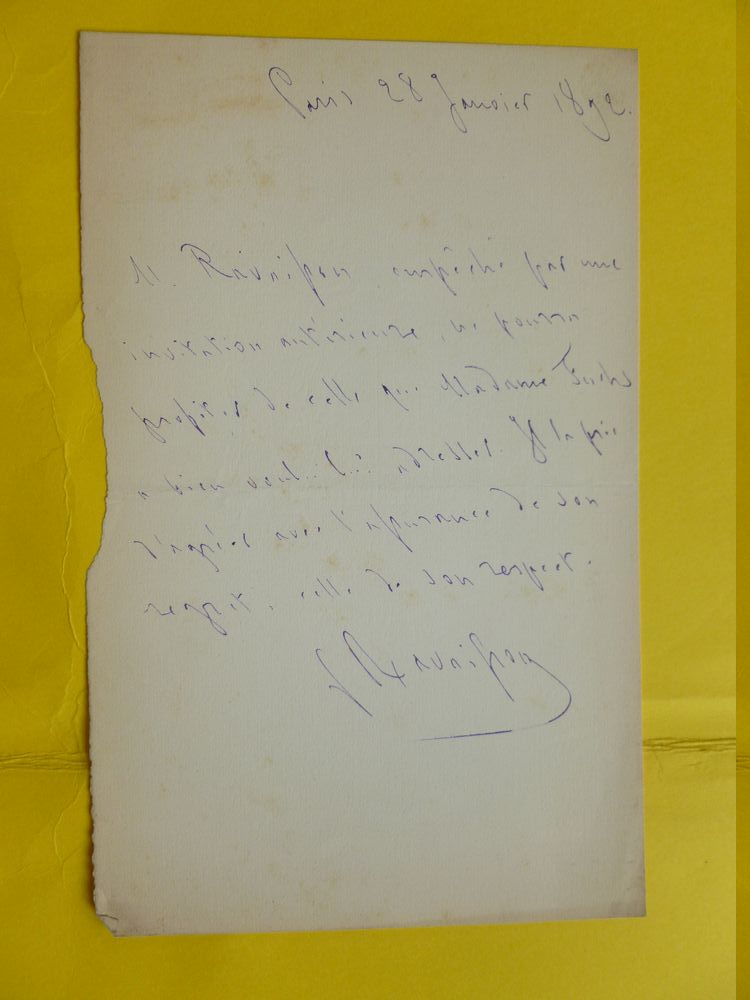 Paris 28 Janvier 1892.
M. Ravaisson empêché par une
invitation antérieure, ne pourra
profiter de celle que Madame Fuchs
a bien voulu lui adresser. Il la prie
d'agréer avec l'assurance de son
regret, celle de son respect.
F Ravaisson